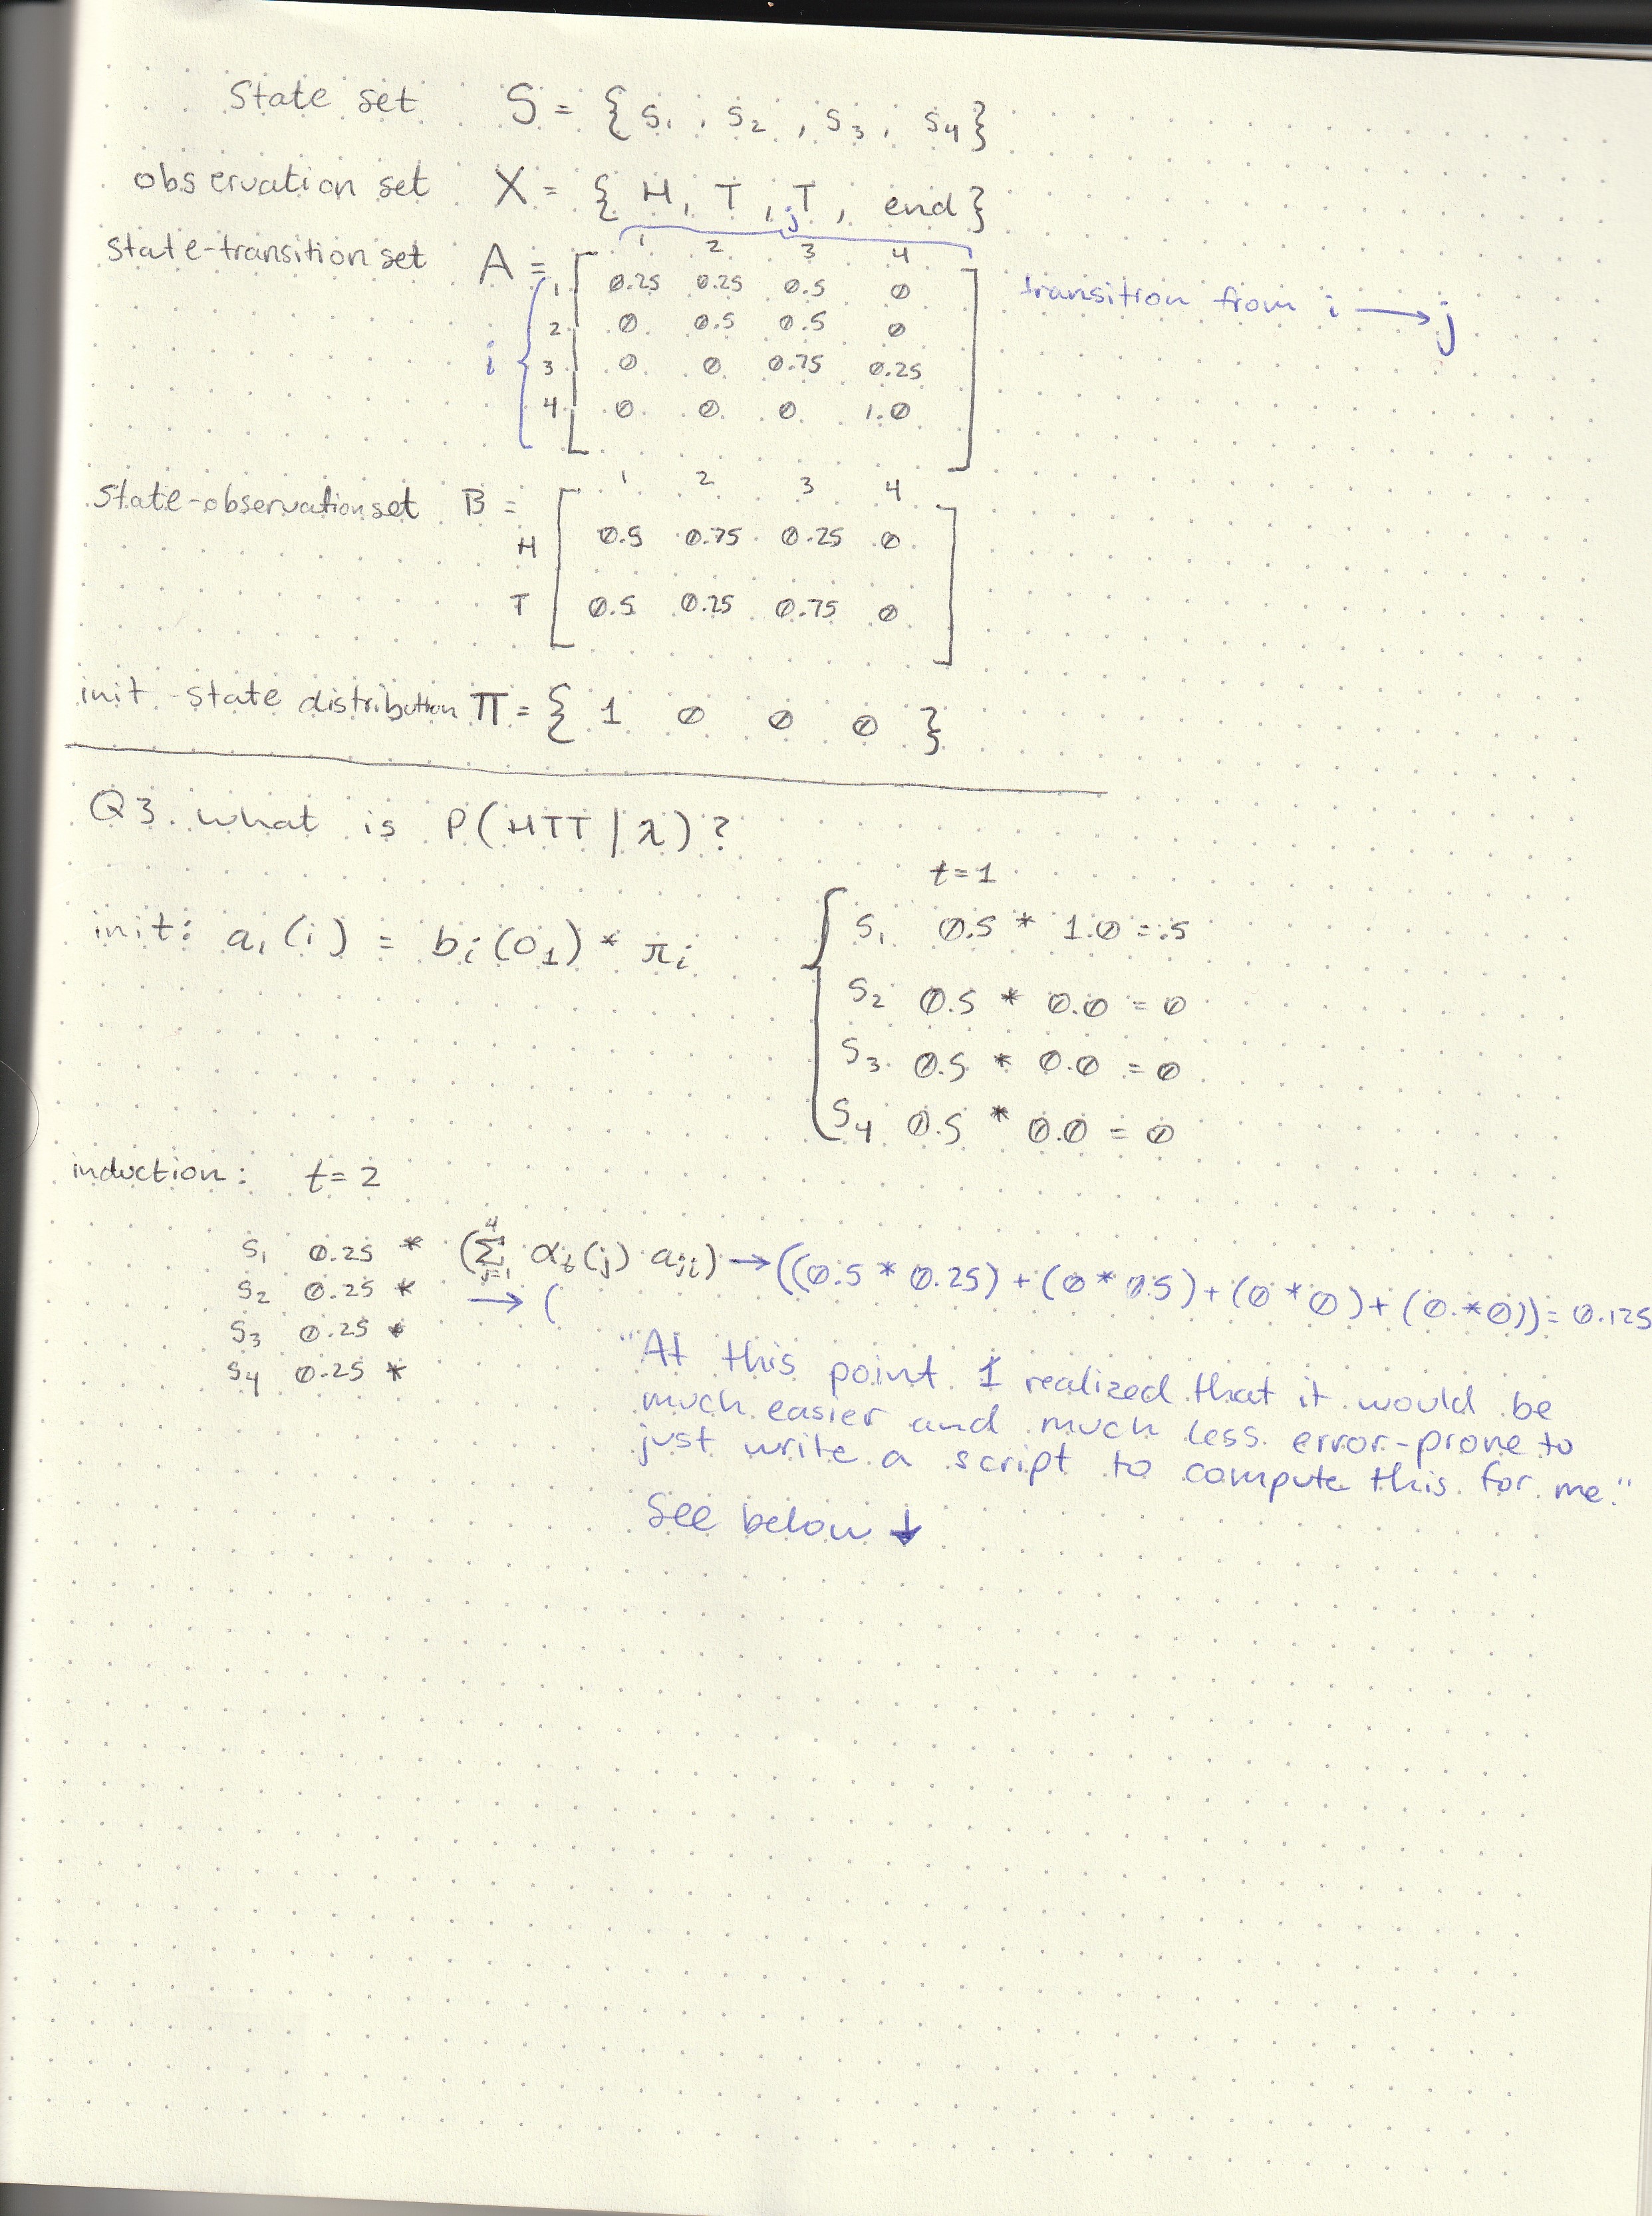 State set S = { S₁, S₂, S₃, S₄}
observation set X = { H, T, T, end}
j
state-transition set A =
1 2 3 4
1 0.25 0.25 0.5 0
2 0 0.5 0.5 0
3 0 0 0.75 0.25
4 0 0 0 1.0
i
transition from i → j
state-observation set B =
1 2 3 4
H 0.5 0.75 0.25 0
T 0.5 0.25 0.75 0
init-state distribution π = { 1 0 0 0 }
Q3. what is P(HTT | λ)?
t=1
init: a₁(i) = bᵢ(O₁) * πᵢ
S₁ 0.5 * 1.0 = .5
S₂ 0.5 * 0.0 = 0
S₃ 0.5 * 0.0 = 0
S₄ 0.5 * 0.0 = 0
induction: t=2
S₁ 0.25 * (Σ⁴ⱼ₌₁ αₜ(j) aⱼᵢ) → ((0.5 * 0.25) + (0 * 0.5) + (0 * 0) + (0.*0)) = 0.125
S₂ 0.25 * → (
S₃ 0.25 *
S₄ 0.25 *
"At this point I realized that it would be
much easier and much less error-prone to
just write a script to compute this for me."
See below ↓